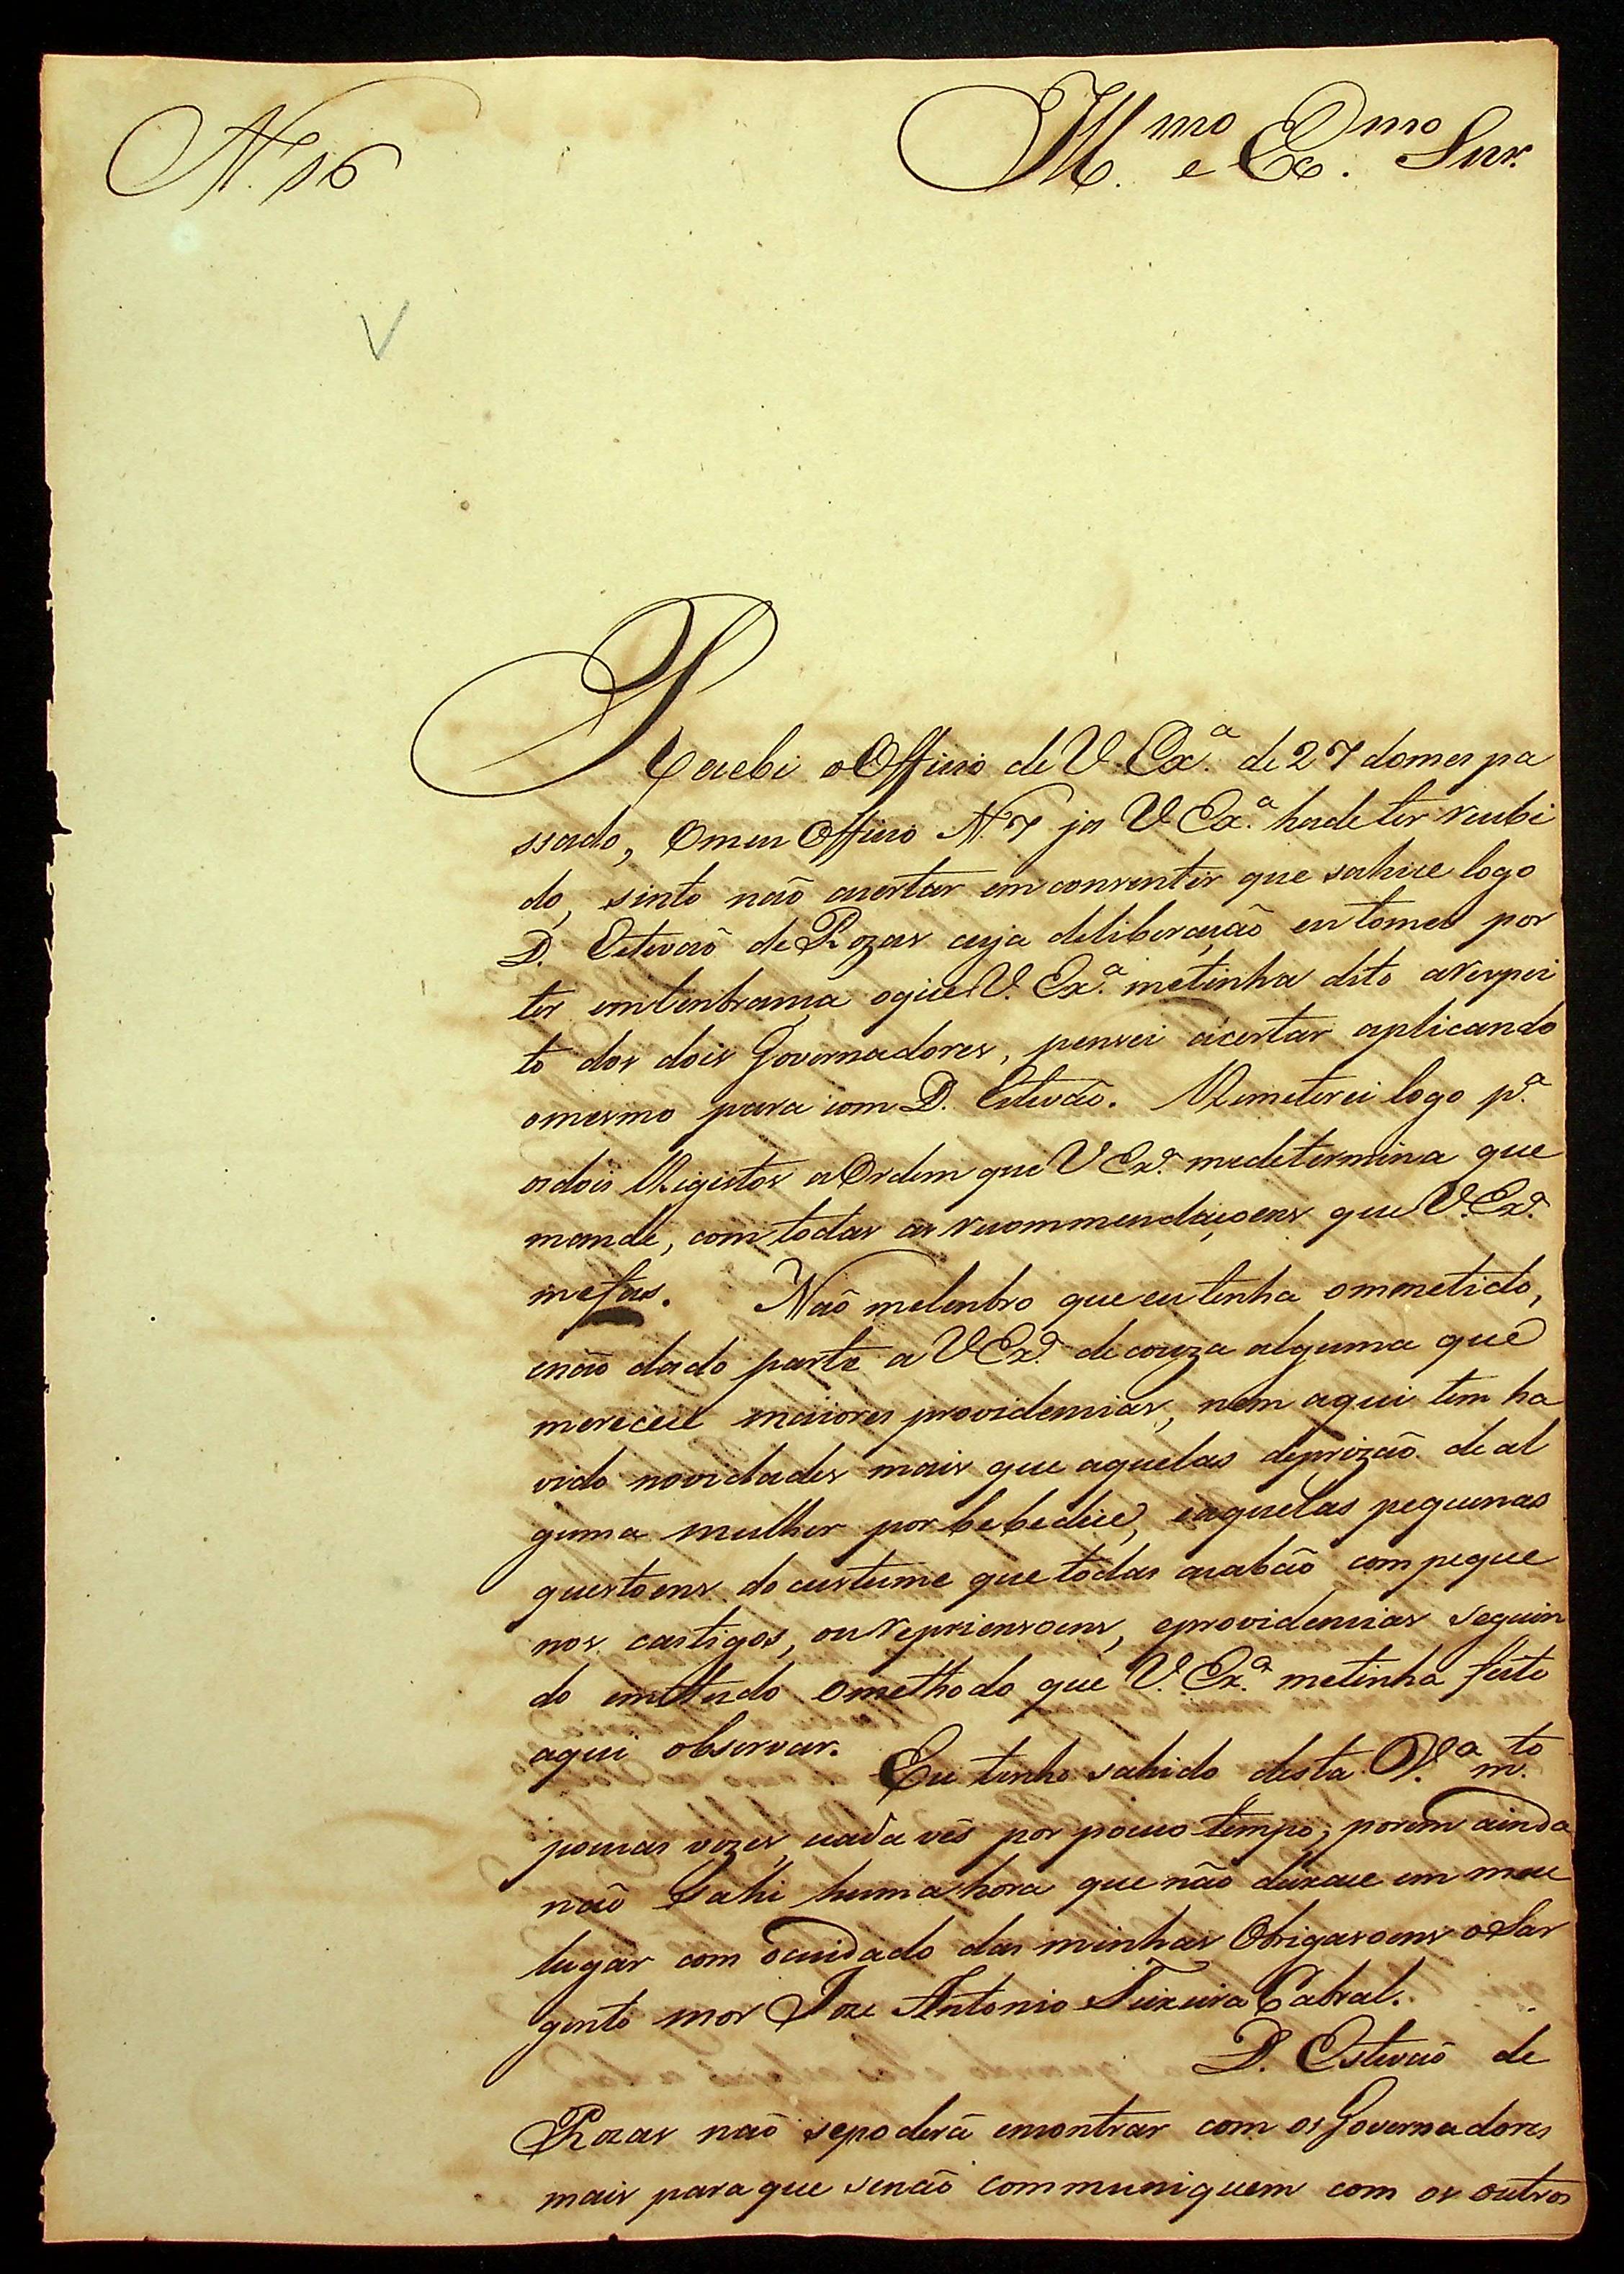 N.º 16
Ill.mo e Ex.mo Snr.
Recebi o Officio de V. Ex.ª de 27 do mes pa
ssado, o meu Officio N.º 7 ja V. Ex.ª hade ter recebi
do, sinto não acertar em consentir que sahice logo
D. Estevão de Rozas cuja deliberação eu tomei por
ter em lenbrança o que V. Ex.ª me tinha dito a respei
to dos dois Governadores, pensei acertar aplicando
o mesmo para com D. Estevão. Remeterei logo p.ª
os dois Registos a Ordem que V. Ex.ª me determina que
mande, com todas as recommendaçoens que V. Ex.ª
me fas. Não me lenbro que eu tenha ommetido,
e não dado parte a V. Ex.ª de couza alguma que
merecece maiores providencias, nem aqui tem ha
vido novidades mais que aquelas de prizão de al
guma mulher por bebedice, e aquelas pequenas
questoens do custume que todas acabão com peque
nos castigos, ou repriensoens, e providencias seguin
do em tudo o methodo que V. Ex.ª me tinha feito
aqui observar. Eu tenho sahido desta V.ª m.to
poucas vezes, cada vês por pouco tempo, porem ainda
não sahi huma hora que não deixace em meu
lugar com o cuidado das minhas Obrigasoens o Sar
gento mor Joze Antonio Teixeira Cabral.
D. Estevão de
Rozas não se poderá encontrar com os Governadores
mais para que senão communiquem com os outros